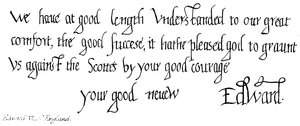 We have at good length understanded to our great
comfort, the good successe, it hathe pleased god to graunt
us against the Scottes by your good courage
your good nevew Edward.
Edward VI, England.